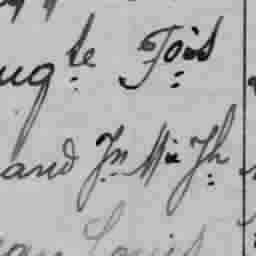 ug.te Fois
and Jn Mie Jh
Louis